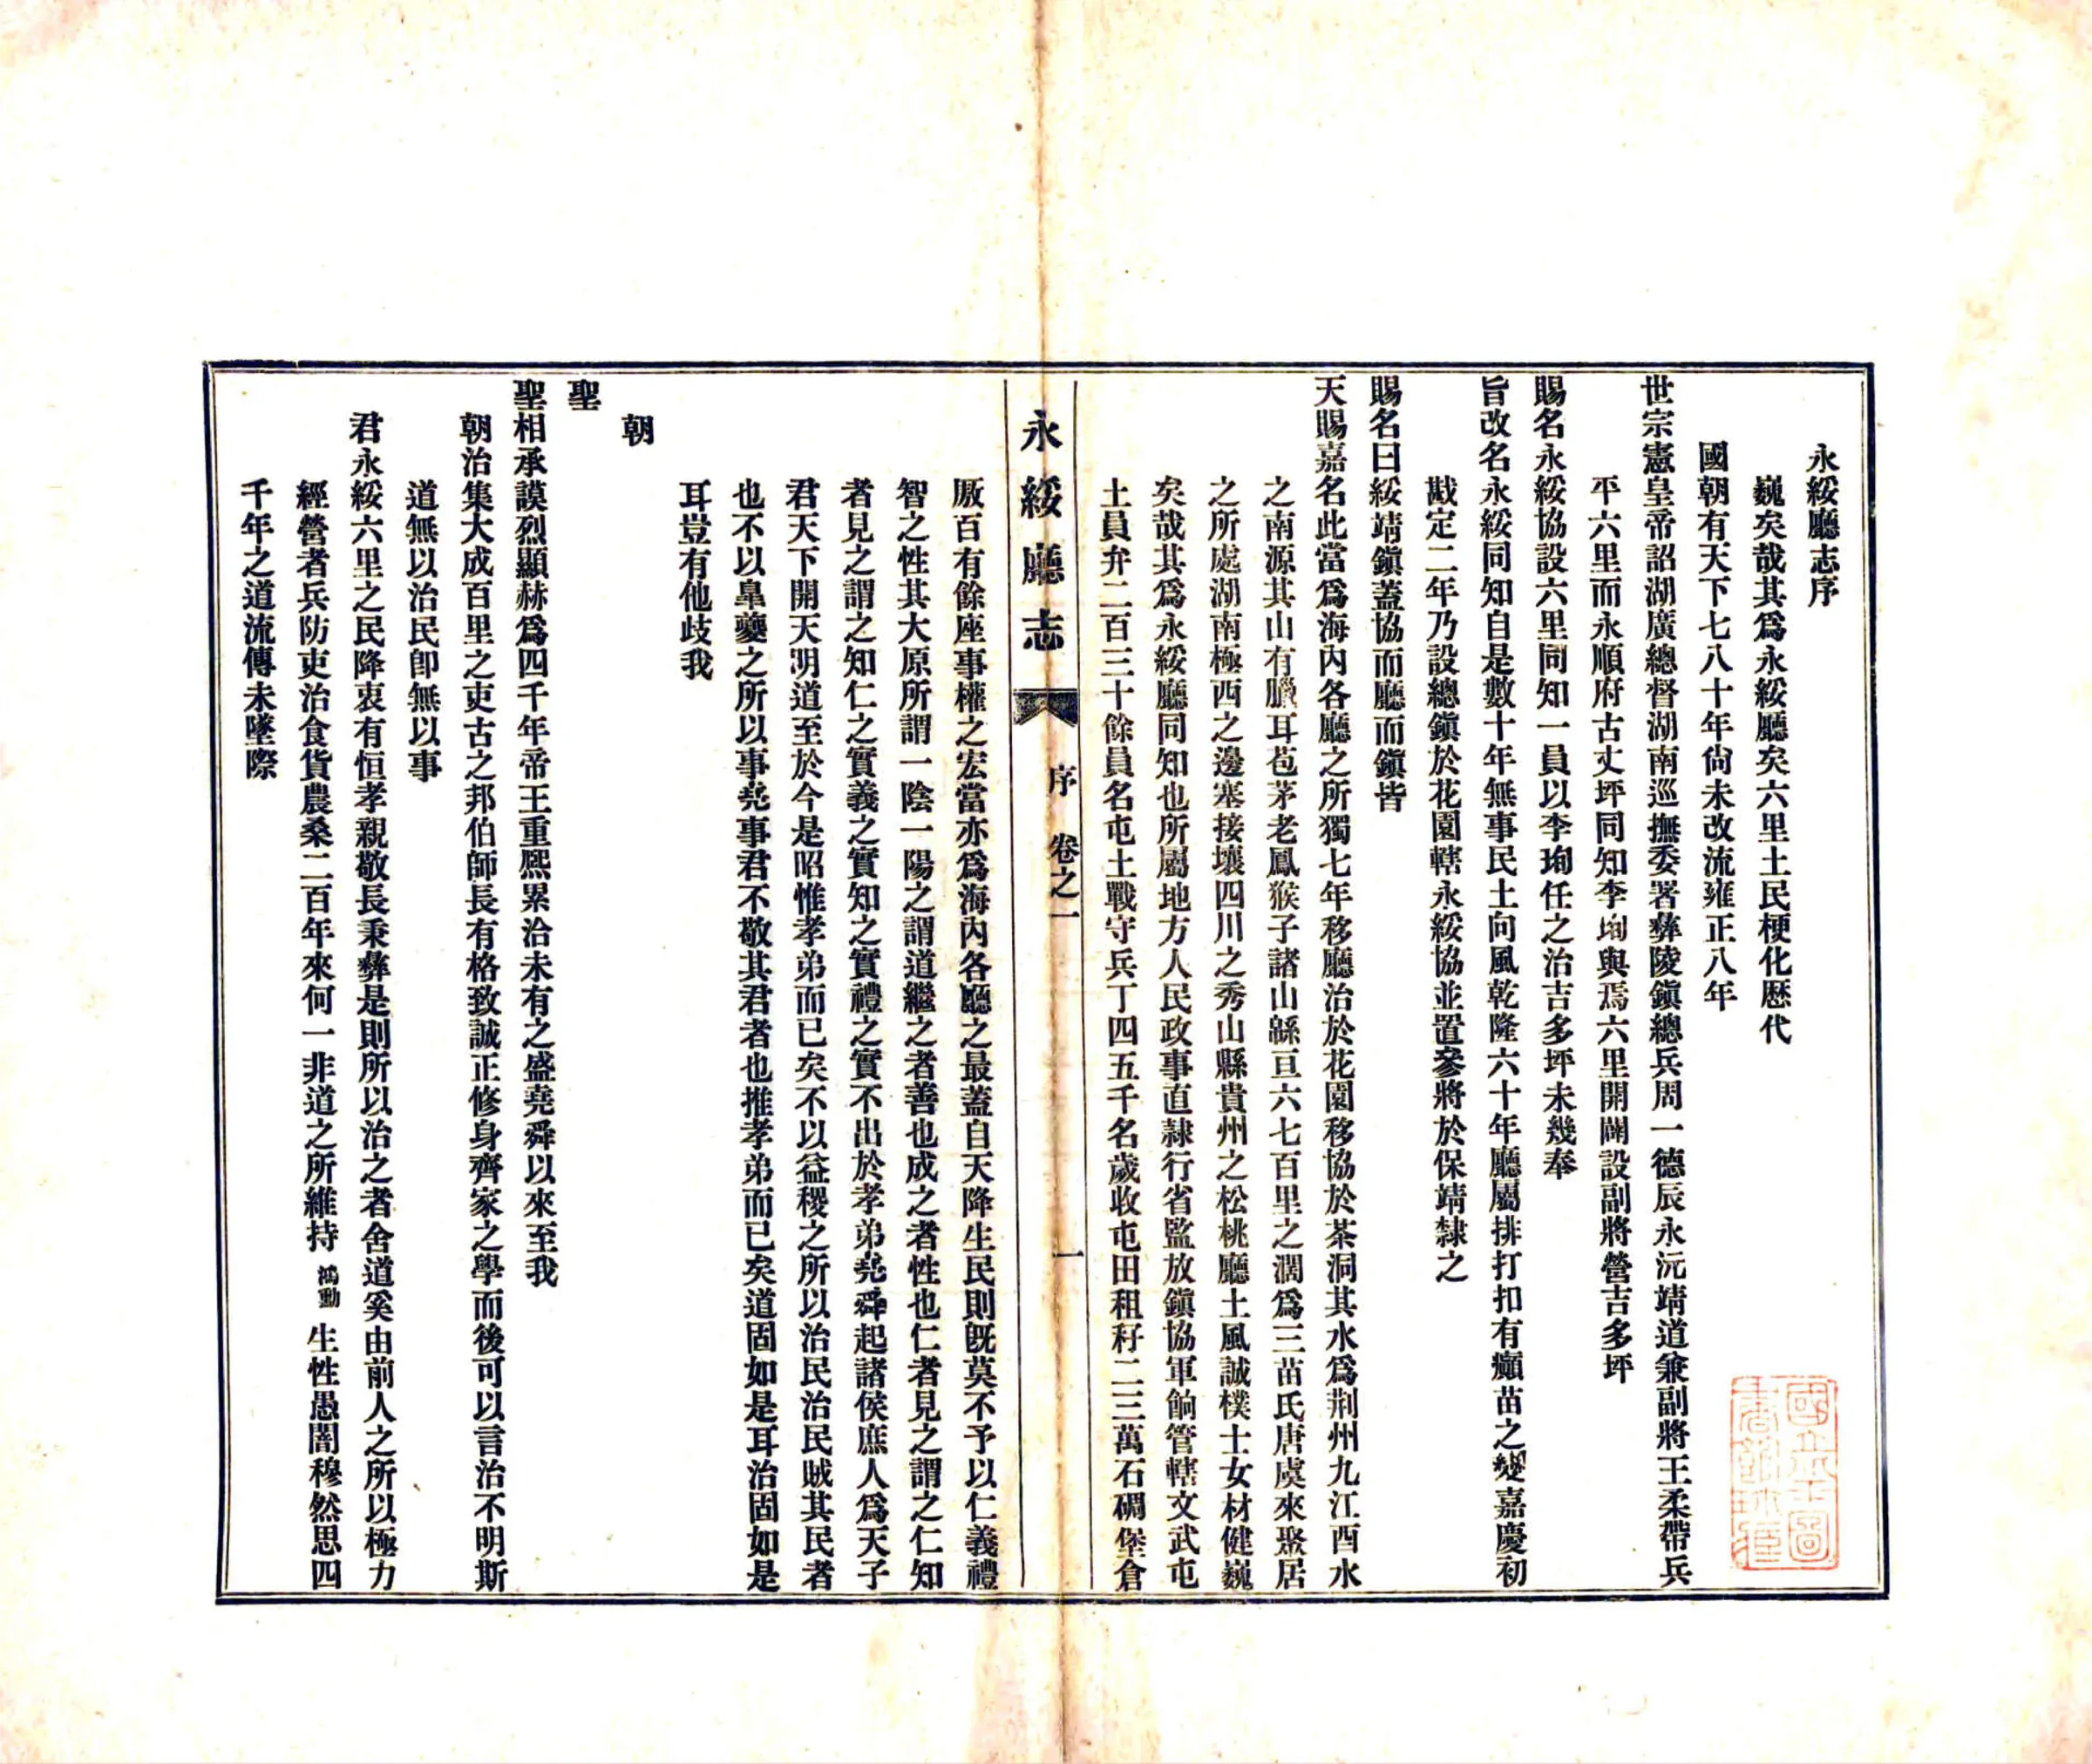 永綏廳志序
巍矣哉其爲永綏廳矣六里土民梗化歷代
國朝有天下七八十年尙未改流雍正八年
世宗憲皇帝詔湖廣總督湖南巡撫委署彝陵鎭總兵周一德辰永沅靖道兼副將王柔帶兵
平六里而永順府古丈坪同知李珣與焉六里開闢設副將營吉多坪
賜名永綏協設六里同知一員以李珣任之治吉多坪未幾奉
旨改名永綏同知自是數十年無事民土向風乾隆六十年廳屬排打扣有癲苗之變嘉慶初
戡定二年乃設總鎭於花園轄永綏協並置參將於保靖隸之
賜名曰綏靖鎭蓋協而廳而鎭皆
天賜嘉名此當爲海內各廳之所獨七年移廳治於花園移協於茶洞其水爲荆州九江酉水
之南源其山有臘耳苞茅老鳳猴子諸山緜亘六七百里之濶爲三苗氏唐虞來聚居
之所處湖南極西之邊塞接壤四川之秀山縣貴州之松桃廳土風誠樸士女材健巍
矣哉其爲永綏廳同知也所屬地方人民政事直隷行省監放鎭協軍餉管轄文武屯
土員弁二百三十餘員名屯土戰守兵丁四五千名歲收屯田租籽二三萬石碉堡倉
永綏廳志 序 卷之一 一
厫百有餘座事權之宏當亦爲海內各廳之最蓋自天降生民則旣莫不予以仁義禮
智之性其大原所謂一陰一陽之謂道繼之者善也成之者性也仁者見之謂之仁知
者見之謂之知仁之實義之實知之實禮之實不出於孝弟堯舜起諸侯庶人爲天子
君天下開天明道至於今是昭惟孝弟而已矣不以益稷之所以治民治民賊其民者
也不以臯夔之所以事堯事君不敬其君者也推孝弟而已矣道固如是耳治固如是
耳豈有他歧我
朝
聖
聖相承謨烈顯赫爲四千年帝王重熙累洽未有之盛堯舜以來至我
朝治集大成百里之吏古之邦伯師長有格致誠正修身齊家之學而後可以言治不明斯
道無以治民卽無以事
君永綏六里之民降衷有恒孝親敬長秉彝是則所以治之者舍道奚由前人之所以極力
經營者兵防吏治食貨農桑二百年來何一非道之所維持鴻勳生性愚闇穆然思四
千年之道流傳未墜際